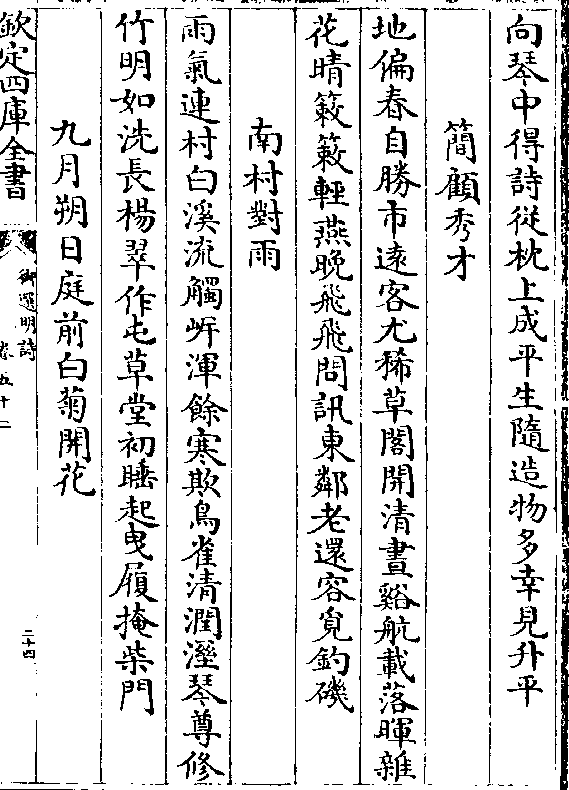 向琴中得詩從枕上成平生隨造物多幸見升平
簡顧秀才
地偏春自勝市逺客尤稀草閣開清晝谿航載落暉雜
花晴簌簌輕燕晚飛飛問訊東鄰老還容覓釣磯
南村對雨
雨氣連村白溪流觸岍渾餘寒欺鳥雀清潤溼琴尊修
竹明如洗長楊翠作屯草堂初睡起曳履掩柴門
九月朔日庭前白菊開花
欽定四庫全書
御選明詩
卷五十二
二十四